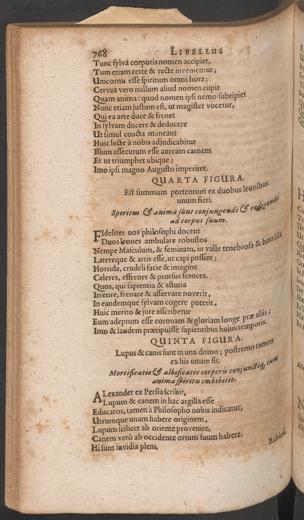 768 LIBELLUS
Tunc sylva corporis nomen accipiet,
Tum etiam certe & recte invenientur,
Unicornu esse spiritum omni hora;
Cervus vero nullum aliud nomen cupit
Quam anima: quod nomen ipsi nemo subripiet
Nunc etiam justum est, ut magister vocetur,
Qui ea arte duce & frenet
In sylvam ducere & deducere
Ut simul coacta maneant
Huic lecte à nobis adjudicabitur
Illum assecutum esse auream carnem
Et ut triumphet ubique;
Imo ipsi magno Augusto imperitet.
QUARTA FIGURA.
Est summum portentum ex duobus leonibus
unum fieri.
Spiritus & anima sunt conjungendi & redigendi
ad corpus suum.
FIdelites nos philosophi docent
Duos leones ambulare robustos
Nempe Masculum, & feminam, in valle tenebrosa & horrida
Latereque & arctis esse, ut capi possunt;
Horrida, crudeli facie & imagine
Celeres, effrenes & prorsus feroces.
Quos, qui sapientia & astutia
Irretire, frenare & asservare noverit,
In eandemque sylvam cogere poterit,
Huic merito & jure asseribetur
Eum adeptum esse coronam & gloriam longe præ aliis;
Imo & laudem præripuisse sapientibus hujus temporis.
QUINTA FIGURA.
Lupus & canis sunt in una domo; postremo tamen
ex his unum fit.
Mortificatio & albificatio corporis conjunctio, cum
anima spiritu imbibitio.
ALexander ex Persia scribit,
Lupum & canem in hac argilla esse
Educatos, tamen à Philosopho nobis indicatur,
Utrumque unam habere originem,
Lupum scilicet ab oriente provenire,
Canem vero ab occidente ortum suum habere.
Hi sunt invidia pleni,